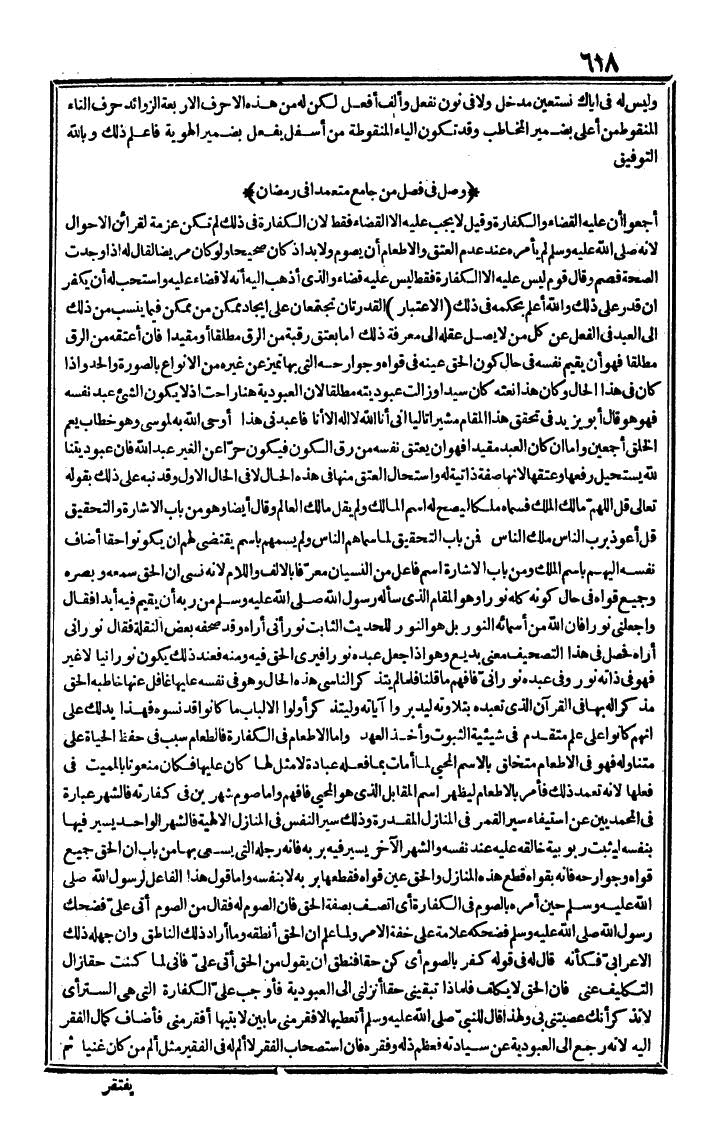 ٦١٨
وليس له فى اياك نستعين مدخل ولا فى نون نفعل وألف أفعل لكن له من هذه الاحرف الاربعة الزوائد حرف التاء
المنقوطة من أعلى بضمير المخاطب وقد تكون الياء المنقوطة من أسفل بفعل بضمير الهوية فاعلم ذلك وبالله
التوفيق
﴿وصل فى فصل من جامع متعمدا فى رمضان﴾
أجمعوا أن عليه القضاء والكفارة وقيل لا يجب عليه الا القضاء فقط لان الكفارة فى ذلك لم تكن عزمة لقرائن الاحوال
لانه صلى الله عليه وسلم لم يأمره عند عدم العتق والاطعام أن يصوم ولا بد اذ كان صحيحا ولو كان مريضا لقال له اذا وجدت
الصحة فصم وقال قوم ليس عليه الا الكفارة فقط ليس عليه قضاء والذى أذهب اليه أنه لا قضاء عليه واستحب له أن يكفر
ان قدر على ذلك والله أعلم بحكمه فى ذلك (الاعتبار) القدرتان تجتمعان على ايجاد ممكن من ممكن فيما ينسب من ذلك
الى العبد فى الفعل عن كل من لا يصل عقله الى معرفة ذلك اما بعتق رقبة من الرق مطلقا أو مقيدا فان أعتقه من الرق
مطلقا فهو أن يقيم نفسه فى حال كون الحق عينه فى قواه وجوارحه التى بها تميز عن غيره من الانواع بالصورة والحد واذا
كان فى هذا الحال وكان هذا نعته كان سيدا وزالت عبوديته مطلقا لان العبودية هنا راحت اذ لا يكون الشئ عبد نفسه
فهو هو قال أبو يزيد فى تحقق هذا المقام مشيرا تاليا انى أنا الله لا اله الا أنا فاعبدنى هذا أوحى الله به لموسى وهو خطاب يعم
الخلق أجمعين واما ان كان العبد مقيدا فهو ان يعتق نفسه من رق الكون فيكون حرّا عن الغير عبد الله فان عبوديتنا
لله يستحيل رفعها وعتقها لانها صفة ذاتية له واستحال العتق منها فى هذه الحال لا فى الحال الاول وقد نبه على ذلك بقوله
تعالى قل اللهمّ مالك الملك فسماه ملكا ليصح له اسم المالك ولم يقل مالك العالم وقال أيضا وهو من باب الاشارة والتحقيق
قل أعوذ برب الناس ملك الناس فمن باب التحقيق لما سماهم الناس ولم يسمهم باسم يقتضى لهم ان يكونوا حقا أضاف
نفسه اليهم باسم الملك ومن باب الاشارة اسم فاعل من النسيان معرّفا بالالف واللام لانه نسى ان الحق سمعه وبصره
وجميع قواه فى حال كونه كله نورا وهو المقام الذى سأله رسول الله صلى الله عليه وسلم من ربه أن يقيم فيه أبدا فقال
واجعلنى نورا فان الله من أسمائه النور بل هو النور للحديث الثابت نور أنى أراه وقد صحفه بعض النقلة فقال نورانى
أراه فحصل فى هذا التصحيف معنى بديع وهو اذا جعل عبده نورا فيرى الحق فيه ومنه فعند ذلك يكون نورانيا لا غير
فهو فى ذاته نور وفى عبده نورانىّ فافهم ما قلنا فلما لم يتذكر الناسى هذه الحال وهو فى نفسه عليها غافل عنها خاطبه الحق
مذكرا له بها فى القرآن الذى تعبده بتلاوته ليدبروا آياته وليتذكر أولوا الالباب ما كانوا قد نسوه فهذا يدلك على
انهم كانوا على علم متقدم فى شيئية الثبوت وأخذ العهد واما الاطعام فى الكفارة فالطعام سبب فى حفظ الحياة على
متناوله فهو فى الاطعام متخلق بالاسم المحيى لما أمات بما فعله عبادة لا مثل لها كان عليها فكان منعوتا بالمميت فى
فعلها لانه تعمد ذلك فأمر بالاطعام ليظهر اسم المقابل الذى هو المحيى فافهم واما صوم شهرين فى كفارته فالشهر عبارة
فى المحمديين عن استيفاء سير القمر فى المنازل المقدرة وذلك سير النفس فى المنازل الالهية فالشهر الواحد يسير فيها
بنفسه ليثبت ربوبية خالقه عليه عند نفسه والشهر الآخر يسير فيه بربه فانه رجله التى يسعى بها من باب ان الحق جميع
قواه وجوارحه فانه بقواه قطع هذه المنازل والحق عين قواه فقطعها بربه لا بنفسه واما قول هذا الفاعل لرسول الله صلى
الله عليه وسلم حين أمره بالصوم فى الكفارة أى اتصف بصفة الحق فان الصوم له فقال من الصوم أتى علىّ فضحك
رسول الله صلى الله عليه وسلم فضحكه علامة على خفة الامر ولما علم ان الحق أنطقه وما أراد ذلك الناطق وان جهله ذلك
الاعرابىّ فكأنه قال له فى قوله كفر بالصوم أى كن حقا فنطق ان يقول من الحق أتى علىّ فانى لما كنت حقا زال
التكليف عنى فان الحق لا يكلف فلماذا تبقينى حقا أنزلنى الى العبودية فأوجب علىّ الكفارة التى هى الستر أى
لا تذكر أنك عصيتنى فى ولهذا قال للنبىّ صلى الله عليه وسلم أتعطيها لافقر منى ما بين لابتيها أفقر منى فأضاف كمال الفقر
اليه لانه رجع الى العبودية عن سيادته فعظم ذله وفقره فان استصحاب الفقر لا ألم له فى الفقير مثل ألم من كان غنيا ثم
يفتقر